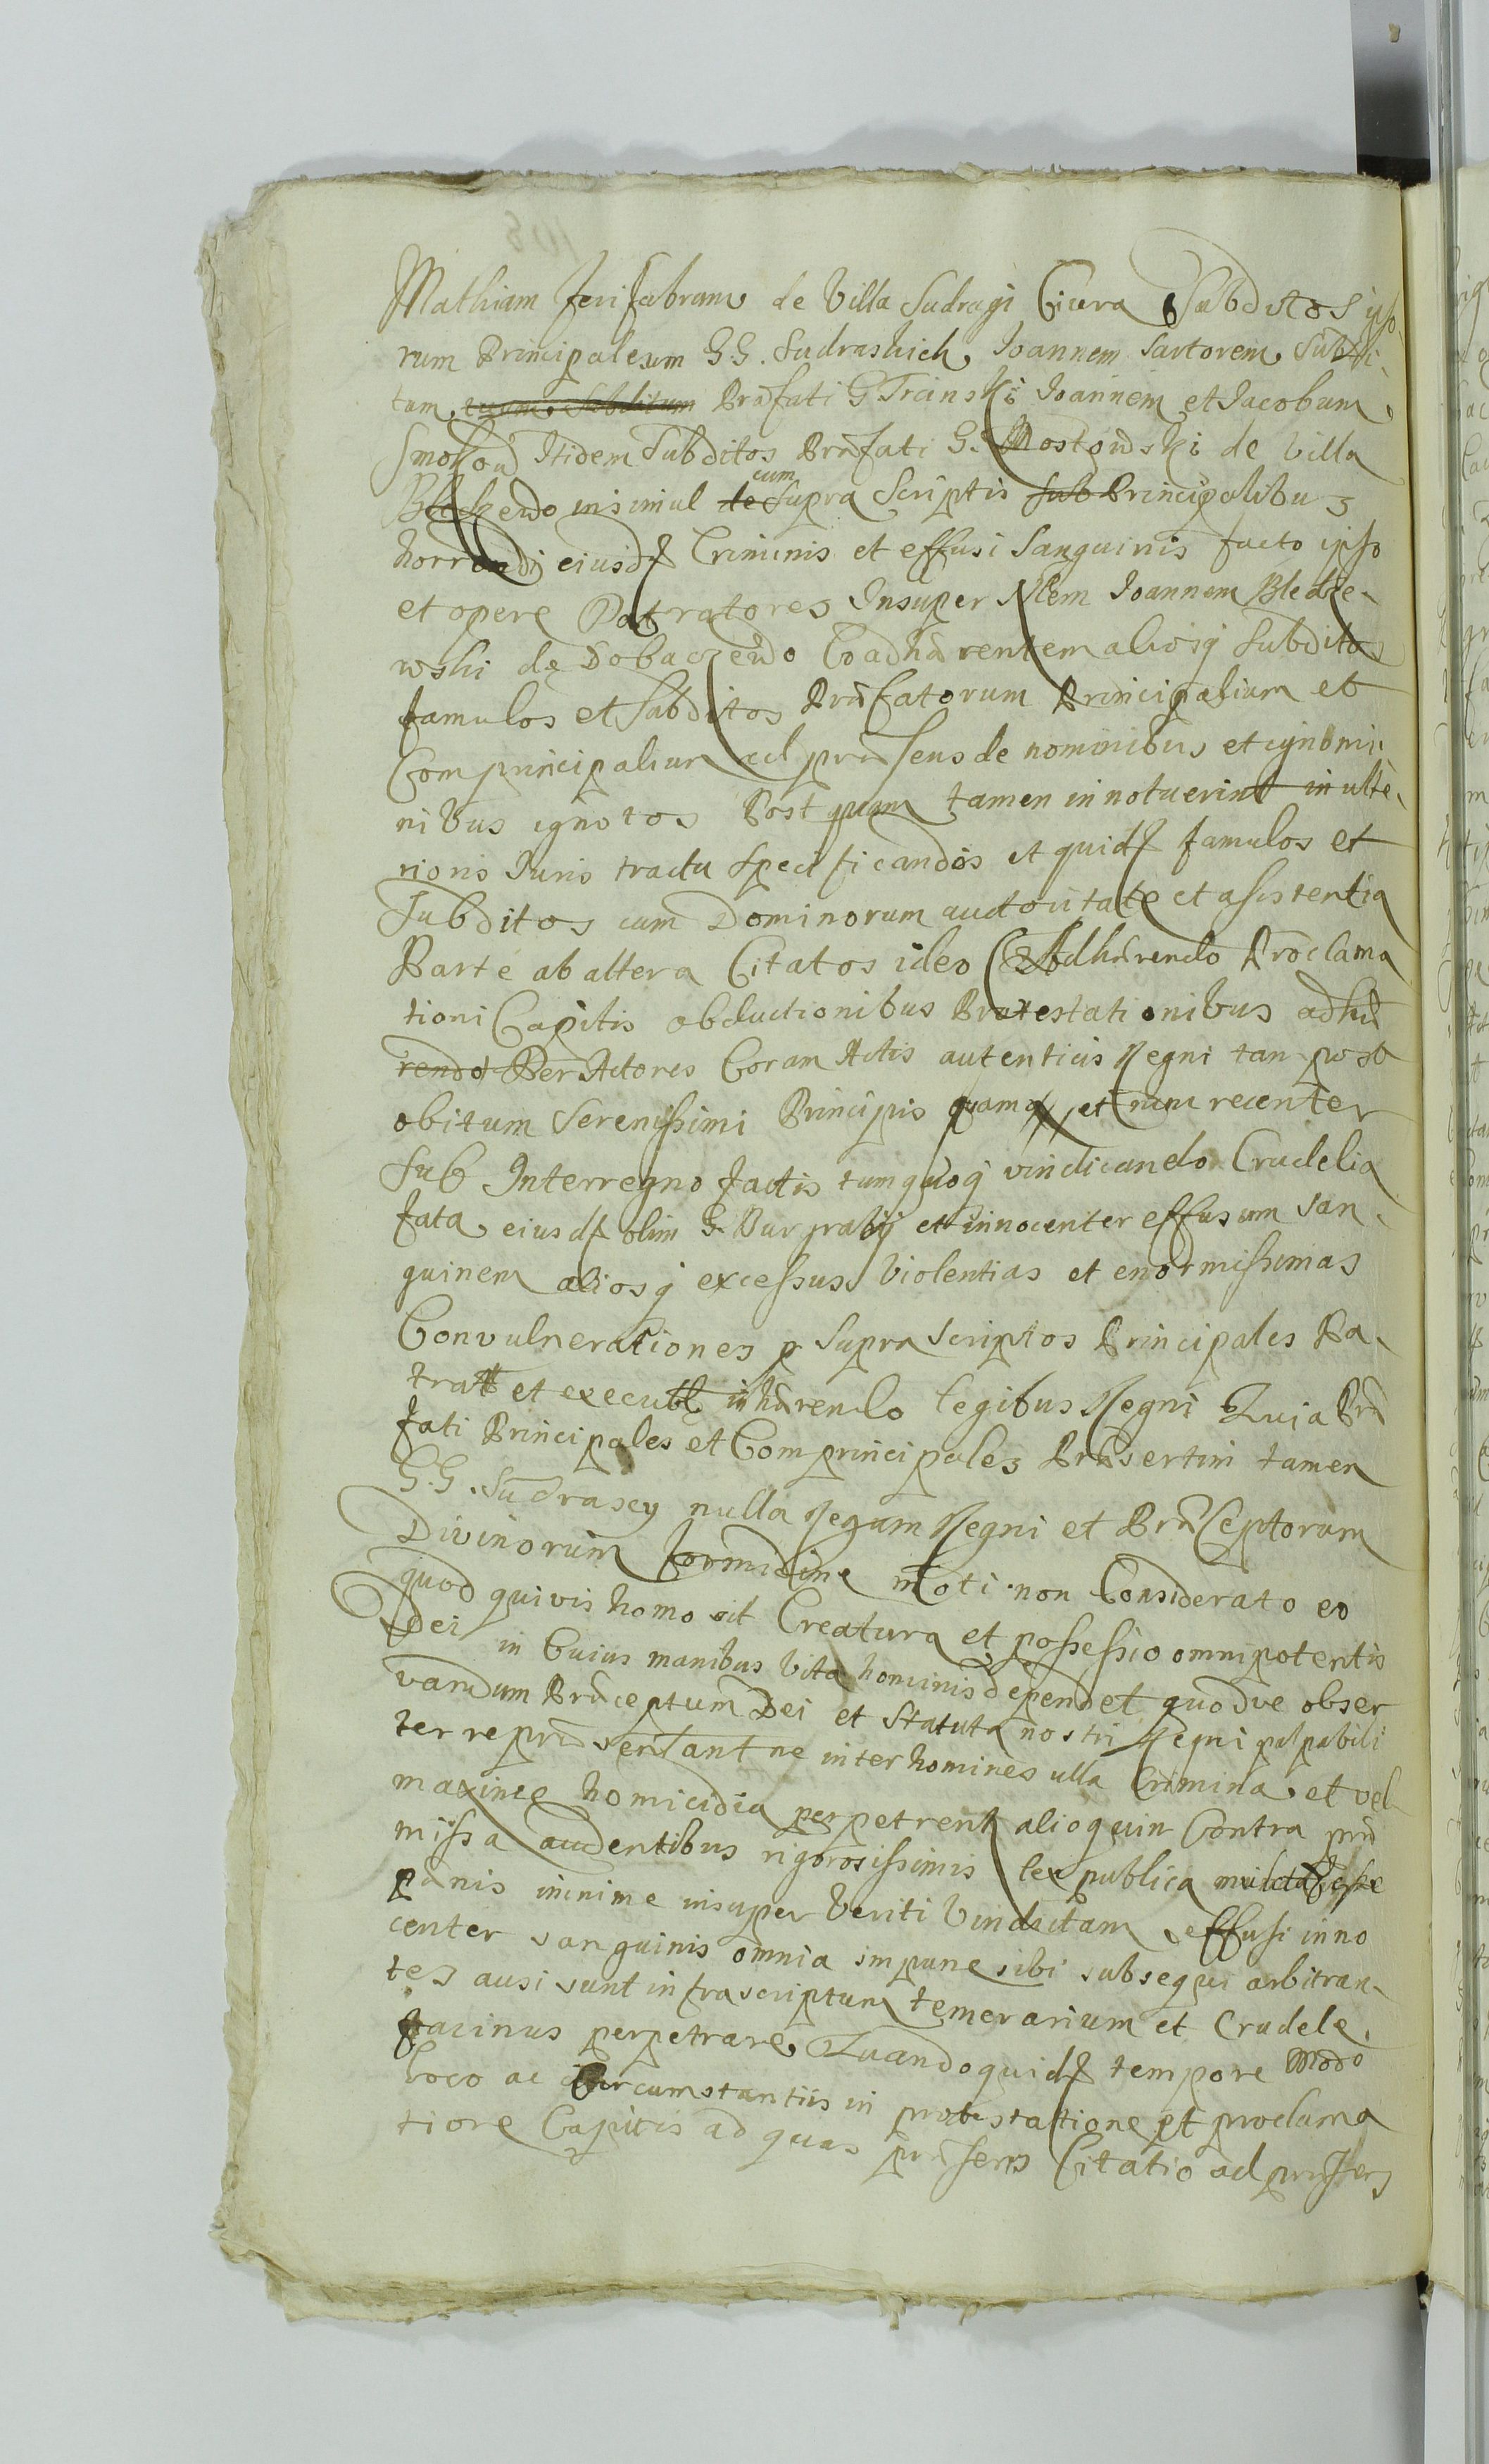 Mathiam ferifabrum de Villa Sudragi Civera Subditos ipso,
rum Principalium G.G. Sudraskich, Joannem Sartorem, Subdi,
tum, tuum, Subditum Præfati G Trcinski Joannem et Jacobum,
Smokow Itidem Subditos Præfati G. Mostowski de Villa
insimul de cum supra Scriptis sub Principalibus
horrendi eiusdem Criminis et effusi Sanguinis facto ipso
et opere Patratores Insuper Nlem Joannem Bledze,
wski de Dobaczewo Coadhærentem aliosq Subditos
famulos et Subditos Præfatorum Principalium et
Comprincipalium ad præsens de nominibus et cognomi,
nibus ignotos Post quam tamen innotuerint in ulte,
rioris Juris tractu specificandos et quidem famulos et
Subditos cum Dominorum auctoritate et assistentia
Parte ab altera Citatos ideo Adhærendo Proclama
tioni Capitis obductionibus Protestationibus adhæ
rendo Per Actores Coram Actis autenticis Regni tan post
obitum Serenissimi Principis quamq, et num recenter
Sub Interregno factis tum quoq vindicando Crudelia
fata, eiusdem olim G. Burgrabij et innocenter effusum san,
guinem aliosq excessus Violentias et enormissimas
Convulnerationes p Supra Scriptos Principales Pa,
tratt et execut inhærendo legibus Regni Quia Præ
fati Principales et Comprincipales Præsertim tamen
G.G. Sudrascy nulla legum Regni et Præceptorum
Divinorum formidine moti non Considerato eo
quod quivis homo sit Creatura et possessio omnipotentis
Dei in Cuius manibus Vita hominis dependet quodve obser
vandum Præceptum Dei et Statuta nostri Regni palpabili
ter repræsentant ne inter homines ulla Crimina, et vel
maxime homicidia perpetrent alioquin Contra præ
missa audentibus rigorosissimis lex publica mulctasse
pænis minime insuper Veriti Vindictam effusi inno
center sanguinis omnia impune sibi subsequi arbitran,
tes ausi sunt infrascriptum temerarium et Crudele,
facinus perpetrare, Quandoquidem tempore Modo
loco ac Circumstantiis in protestatione et proclama
tione Capitis ad quas præsens Citatio ad præsens